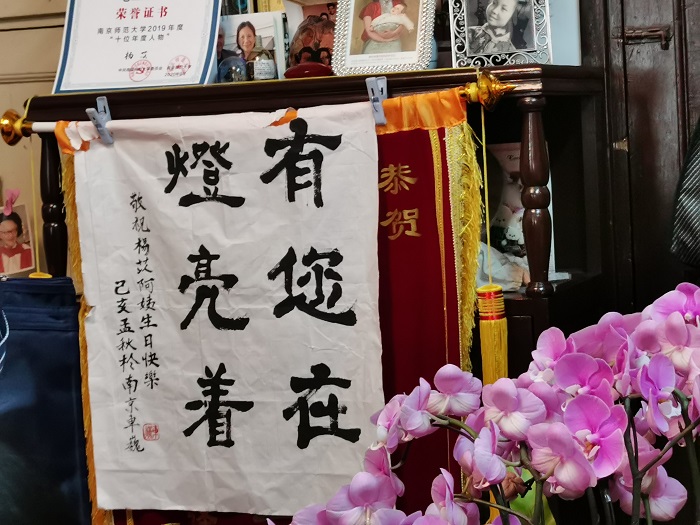 荣誉证书
南京师范大学2019年度
“十位年度人物”
杨苡
恭贺
有您在
燈亮着
敬祝杨苡阿姨生日快樂
己亥孟秋於南京車巍